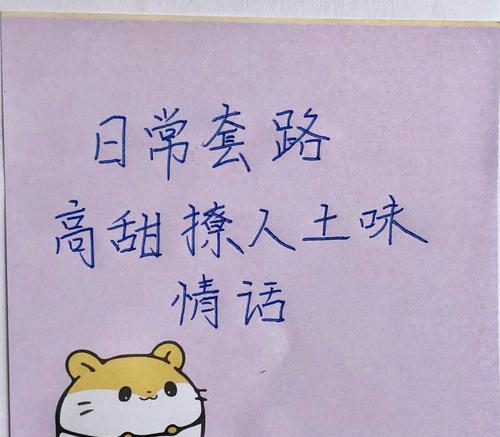 日常套路
高甜撩人土味
情话